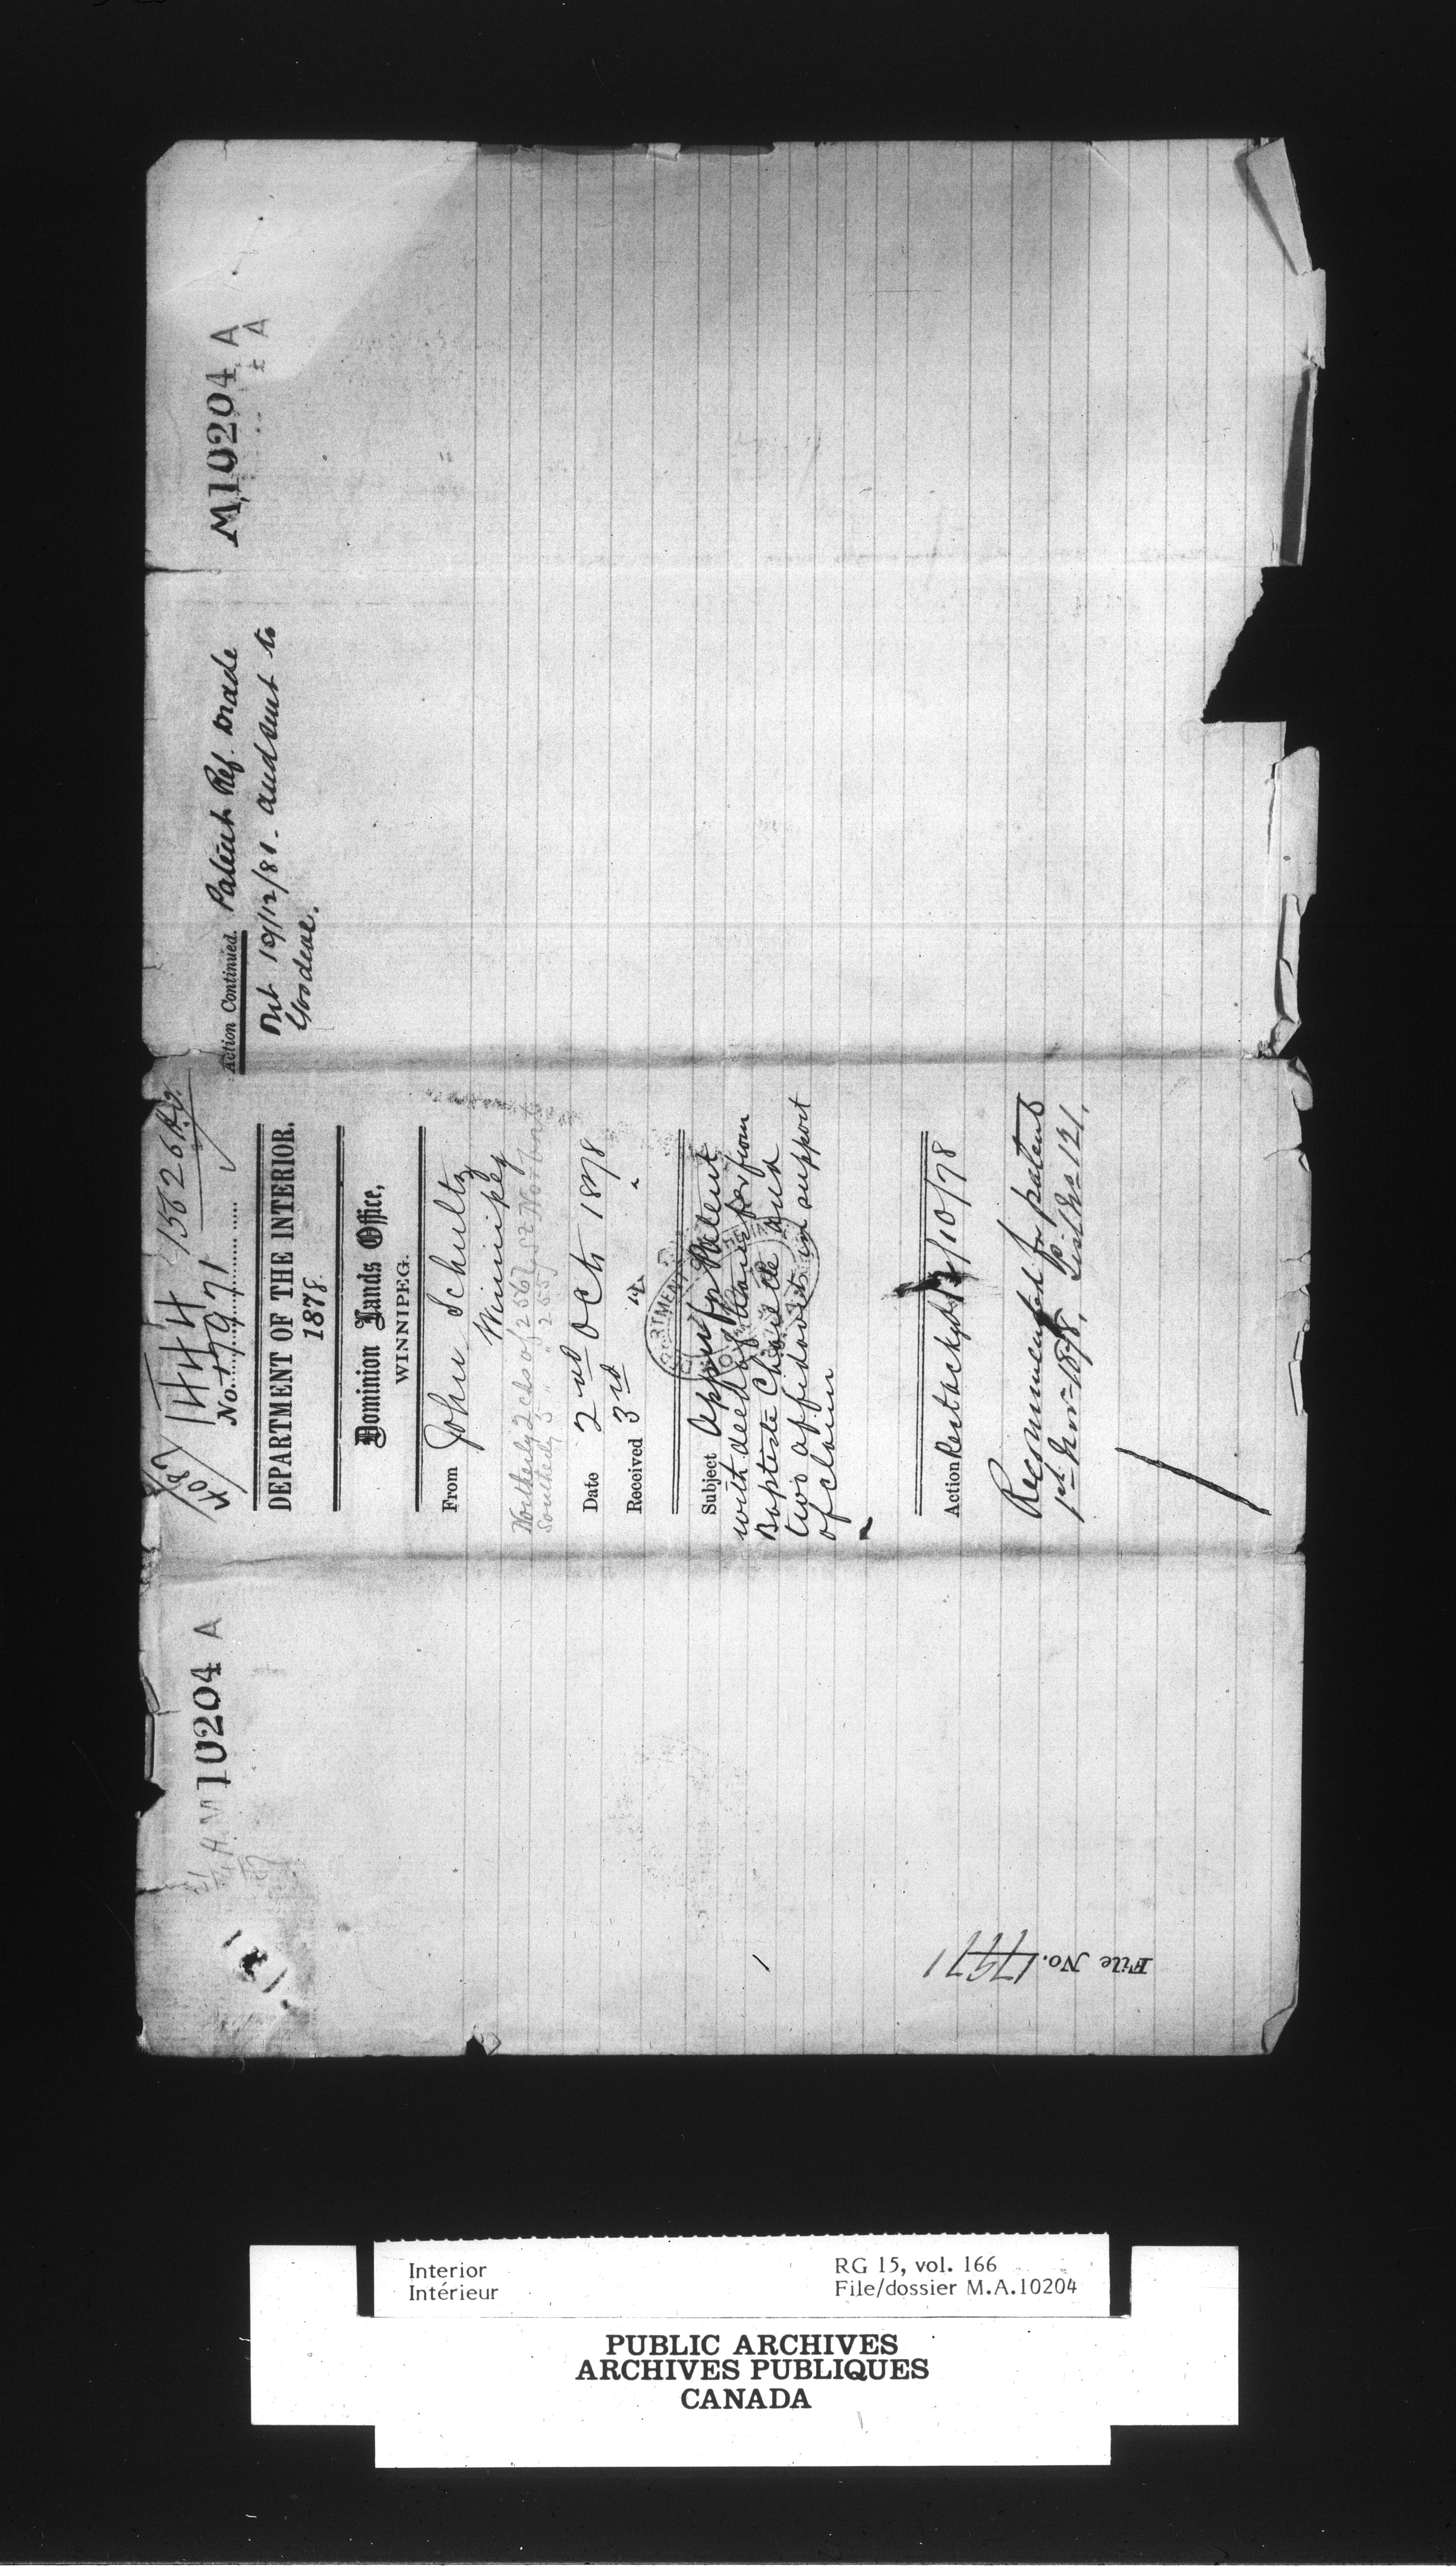 M,10204 A
A
Action Continued. Patent Ref. made
19/12/81. and sent to
Goodeve.
1444 15626
No. 17971
DEPARTMENT OF THE INTERIOR.
1878.
Dominion Lands Office,
WINNIPEG.
From John Schultz
Winnipeg
Northerly 2 chs of 256 St Norbert
Southerly 3 " " 255
Date 2nd Oct 1878
Received 3rd " "
Subject Appn for Patent
with deed of from
Baptiste Charette and
two affidavits in support
of claim
Action Rect ackgd /10/78
Recommended for patent
1st Nov 1878, List No 121.
M 10204 A
121
File No. 17971
Interior
Intérieur
RG 15, vol. 166
File/dossier M.A.10204
PUBLIC ARCHIVES
ARCHIVES PUBLIQUES
CANADA